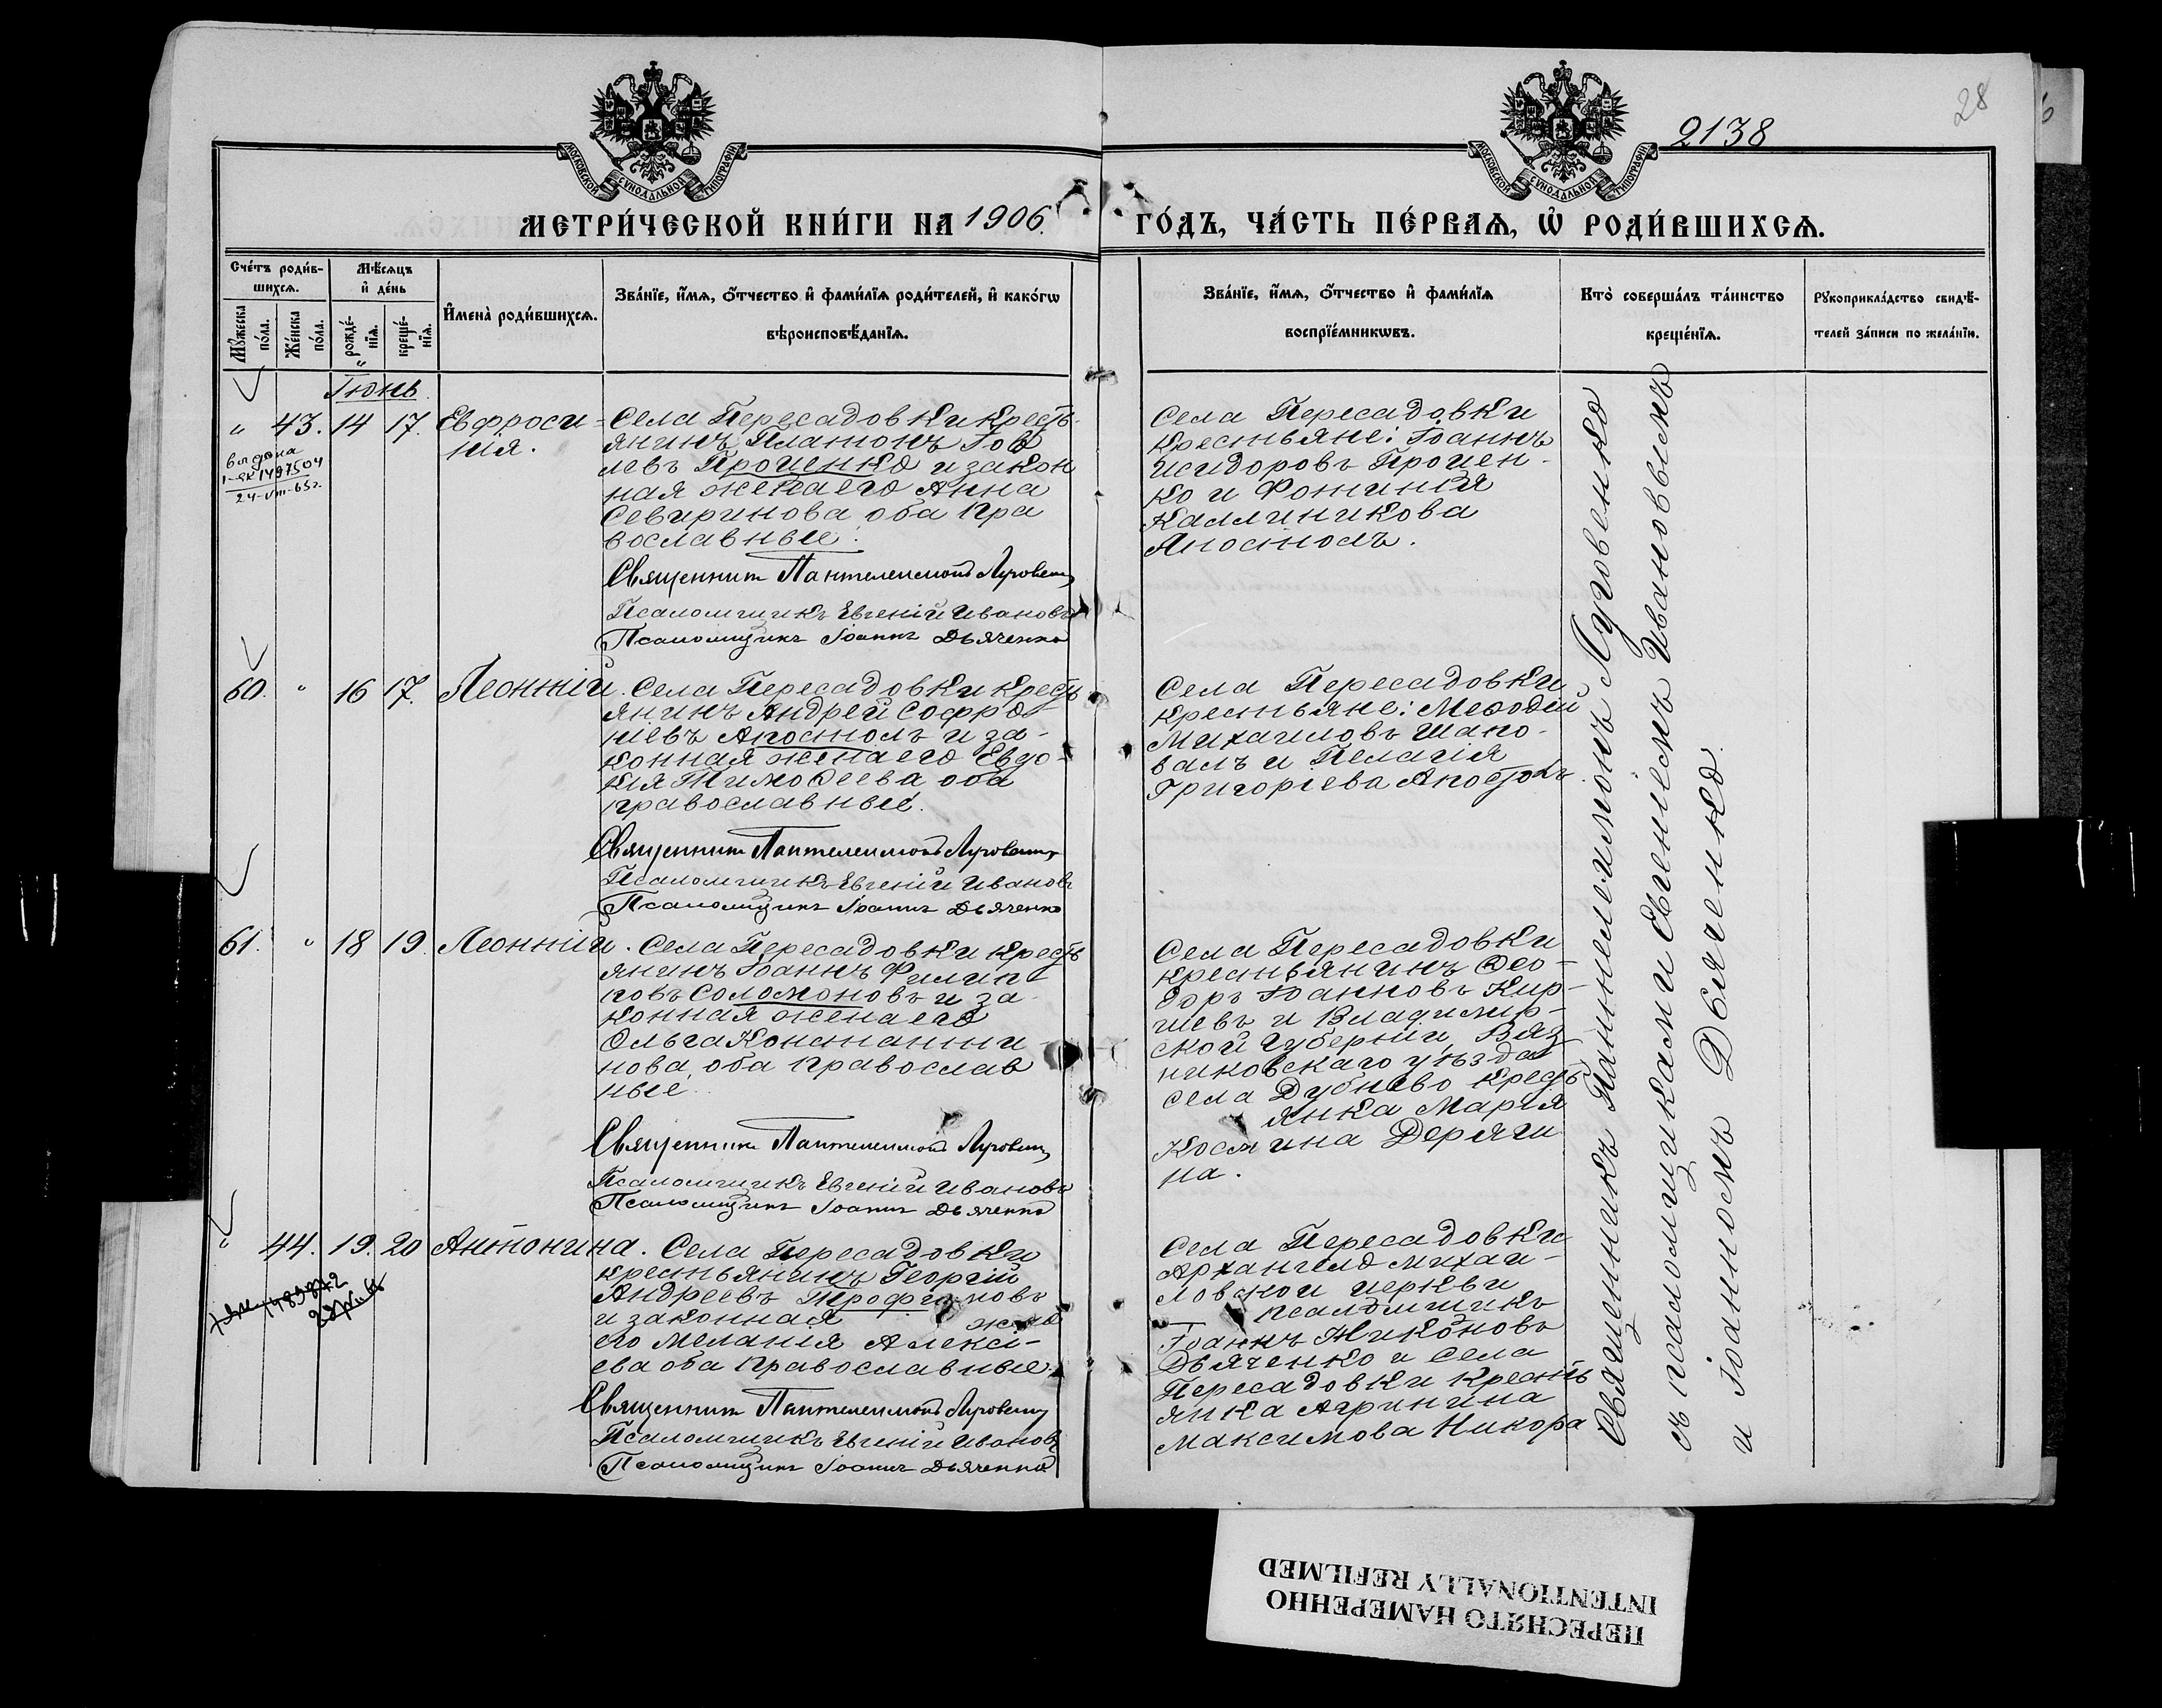 2138
28
МОСКОВСКОЙ СѴНОДАЛЬНОЙ ТИПОГРАФІИ
МОСКОВСКОЙ СѴНОДАЛЬНОЙ ТИПОГРАФІИ
МЕТРИ́ЧЕСКОЙ КНИ́ГИ НА 1906. ГО́ДЪ, ЧА́СТЬ ПЕ́РВАѦ, Ѡ҆ РОДИ́ВШИХСѦ.
Сче́тъ роди́в-
шихсѧ.
Мꙋ́жеска по́ла.
Же́нска по́ла.
Мѣ́сѧцъ
и҆ де́нь
рожде́-
нїѧ.
креще́-
нїѧ.
И҆мена̀ роди́вшихсѧ.
Зва́нїе, и҆́мѧ, ѻ҆́тчество и҆ фами́лїѧ роди́телей, и҆ како́гѡ
вѣроисповѣ́данїѧ.
Зва́нїе, и҆́мѧ, ѻ҆́тчество и҆ фами́лїѧ
воспрїе́мникѡвъ.
Кто̀ соверша́лъ та́инство
креще́нїѧ.
Рꙋкоприкла́дство свидѣ́-
телей за́писи по жела́нїю.
Іюнь
" 43. 14 17. Евфроси-
нія.
выдана
I-ЯК 1497504
24-VIII-65г.
Села Пересадовки кресть-
янинъ Платонъ Іов
левъ Проценко и закон
ная жена его Анна
Севиринова оба пра
вославные.
Священник Пантелеимонъ Луговенко
Псаломщикъ Евгеній Ивановъ
Псаломщикъ Іоаннъ Дьяченко
Села Пересадовки
крестьяне: Іоаннъ
Исидоровъ Процен-
ко и Фотинія
Каллиникова
Апостолъ.
60. " 16 17. Леонтій.
Села Пересадовки кресть
янинъ Андрей Софро
ніевъ Апостолъ и за-
конная жена его Евдо-
кія Тимоѳеева оба
православные.
Священник Пантелеимонъ Луговенко
Псаломщикъ Евгеній Ивановъ
Псаломщикъ Іоаннъ Дьяченко
Села Пересадовки
крестьяне: Меѳодій
Михаиловъ Шапо-
валъ и Пелагія
Григоріева Апостолъ.
61. " 18 19. Леонтій.
Села Пересадовки кресть
янинъ Іоаннъ Филип
повъ Соломоновъ и за-
конная жена его
Ольга Константи-
нова, оба православ
ные.
Священник Пантелеимонъ Луговенко
Псаломщикъ Евгеній Ивановъ
Псаломщикъ Іоаннъ Дьяченко
Села Пересадовки
крестьянинъ Ѳео-
доръ Іоанновъ Кир-
шевъ и Владимір-
ской Губерніи, Вяз
никовскаго уѣзда
села Дубнево кресть
янка Марія
Космина Деряги
на.
" 44. 19. 20 Антонина.
Села Пересадовки
крестьянинъ Георгій
Андреевъ Трофимовъ
и законная жена
его Меланія Алексі-
ева оба православные.
Священник Пантелеимонъ Луговенко
Псаломщикъ Евгеній Ивановъ
Псаломщикъ Іоаннъ Дьяченко
Села Пересадовки
Архангело Михаи-
ловской церкви
псаломщикъ
Іоаннъ Никоновъ
Дьяченко и села
Пересадовки кресть
янка Агрипина
Максимова Никора
Священникъ Пантелеимонъ Луговенко
съ псаломщиками Евгеніемъ Ивановымъ
и Іоанномъ Дьяченко.
ПЕРЕСНЯТО НАМЕРЕННО
INTENTIONALLY REFILMED